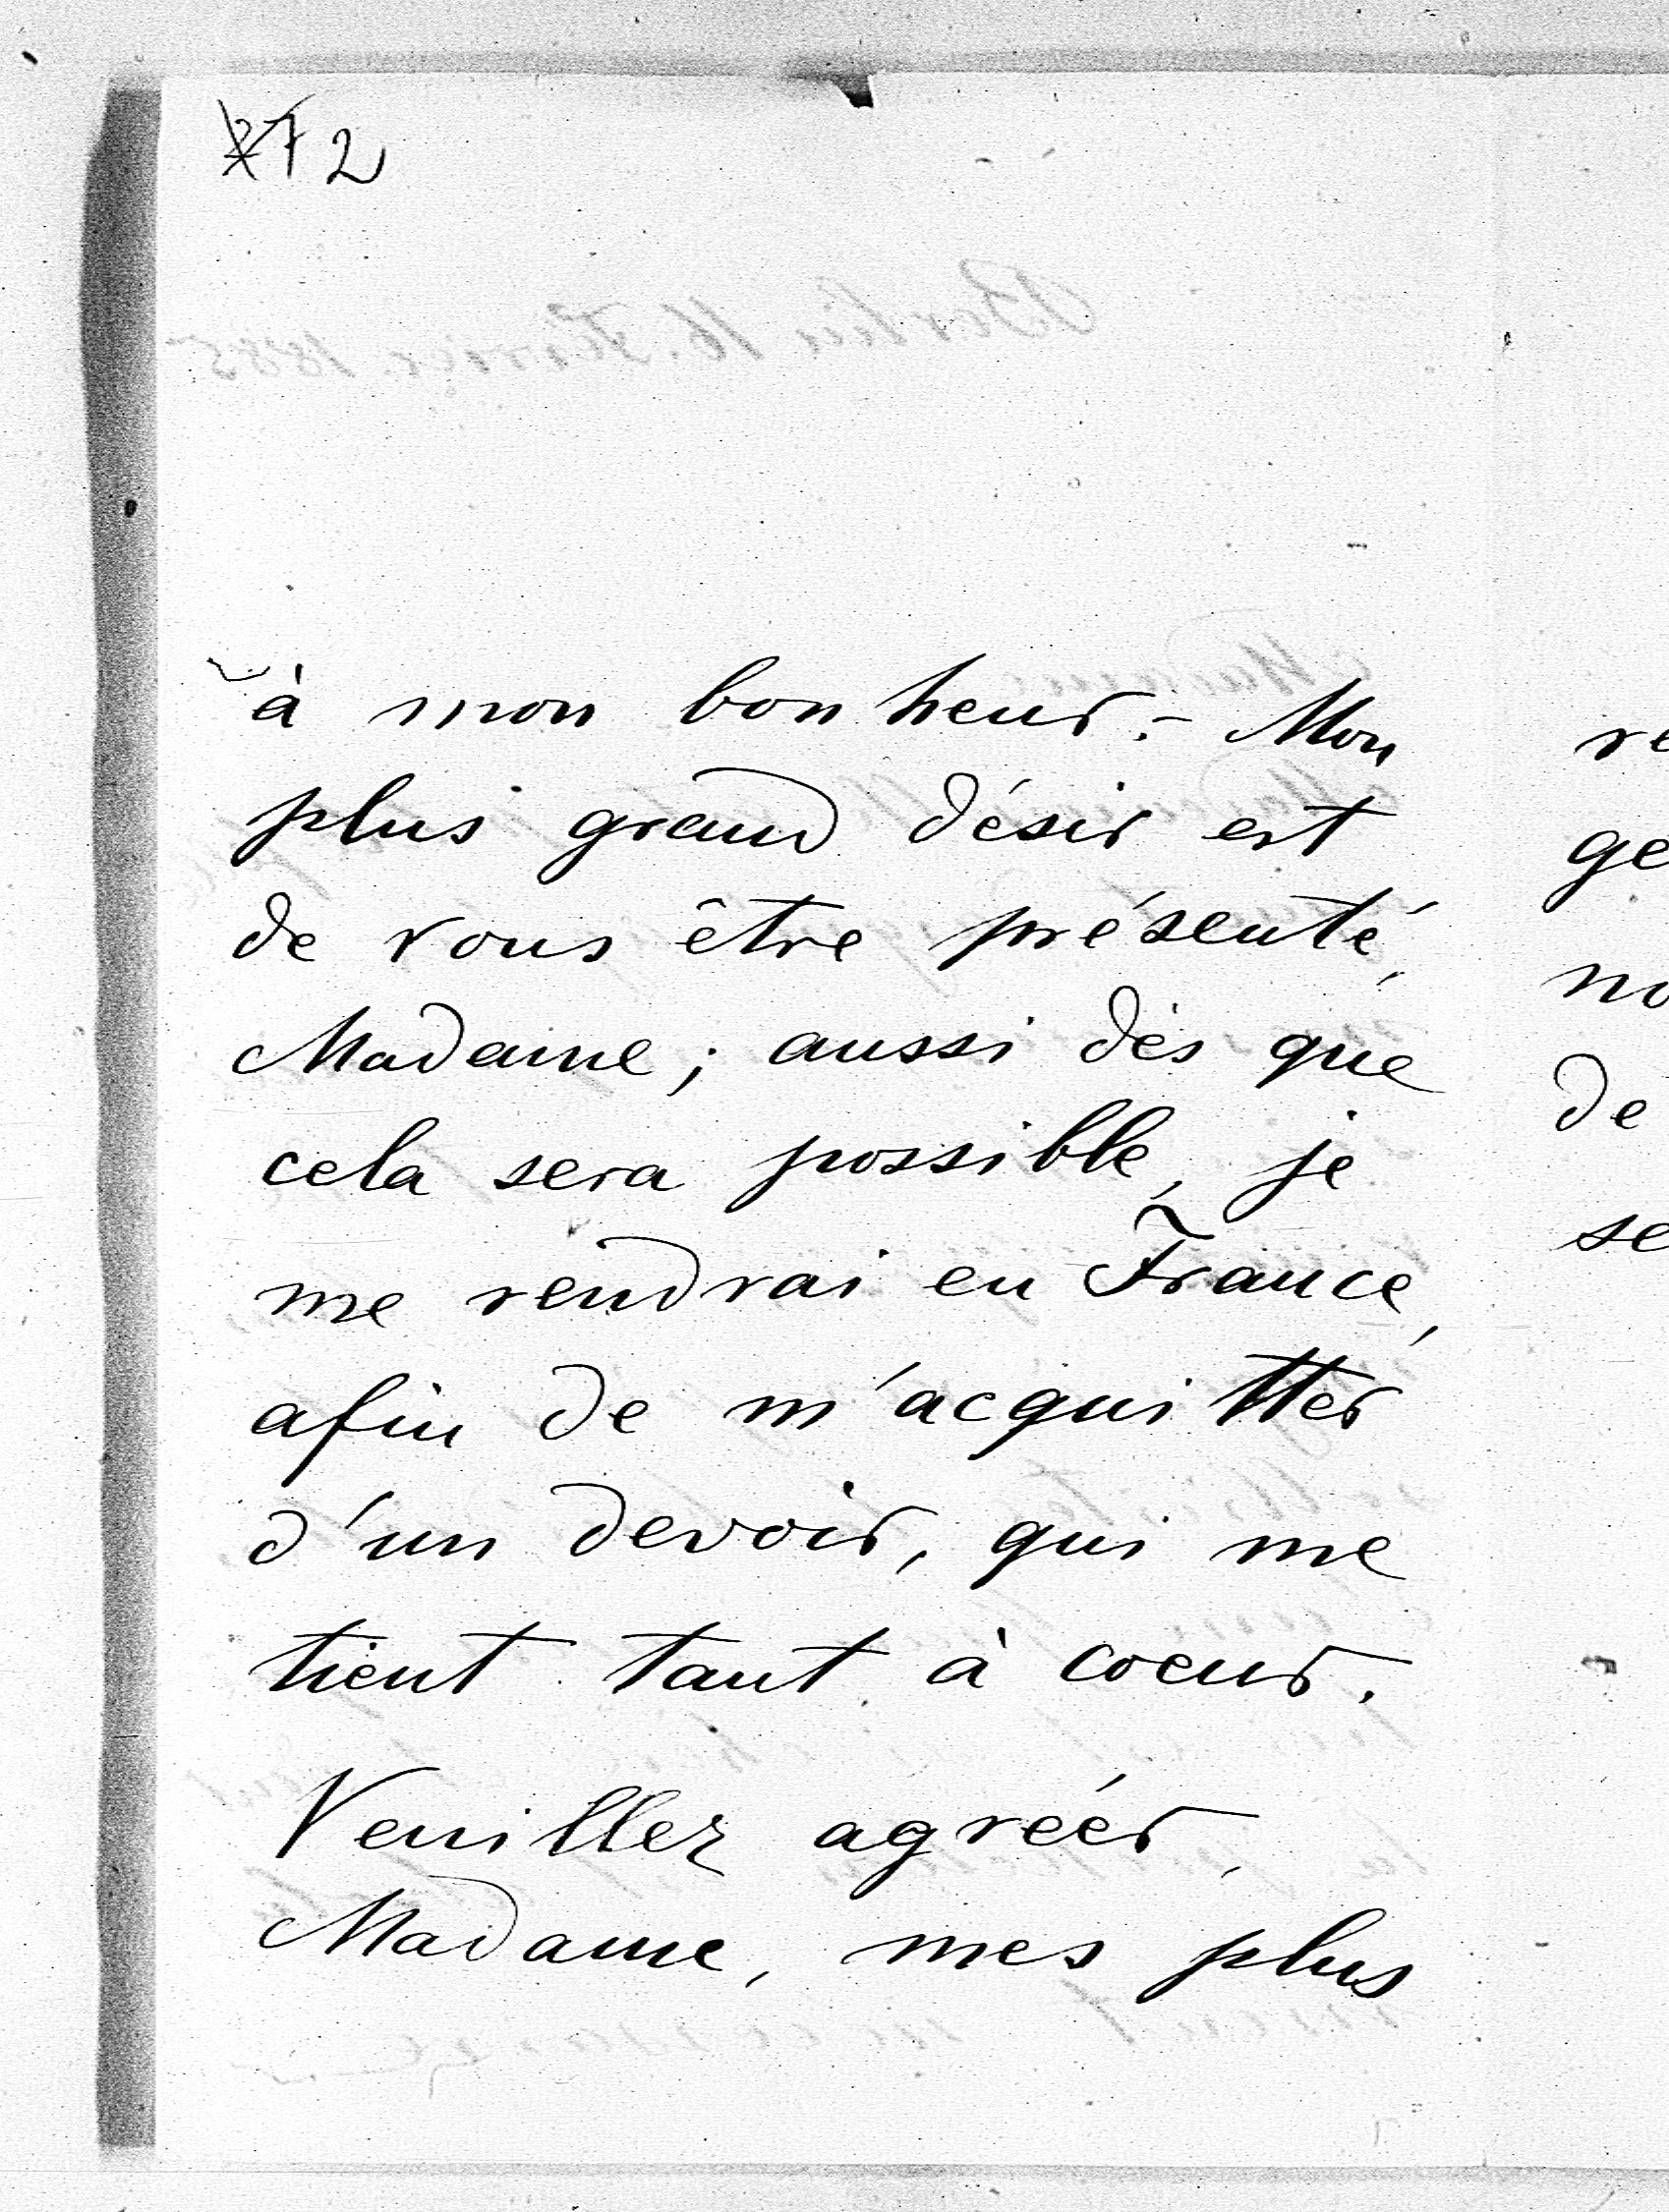 2
à mon bonheur. - Mon
plus grand désir est
de vous être présenté,
Madame; aussi dès que
cela sera possible, je
me rendrai en France,
afin de m'acquitter
d'un devoir, qui me
tient tant à coeur.
Veuillez agréer,
Madame, mes plus
re
ge
no
de
se